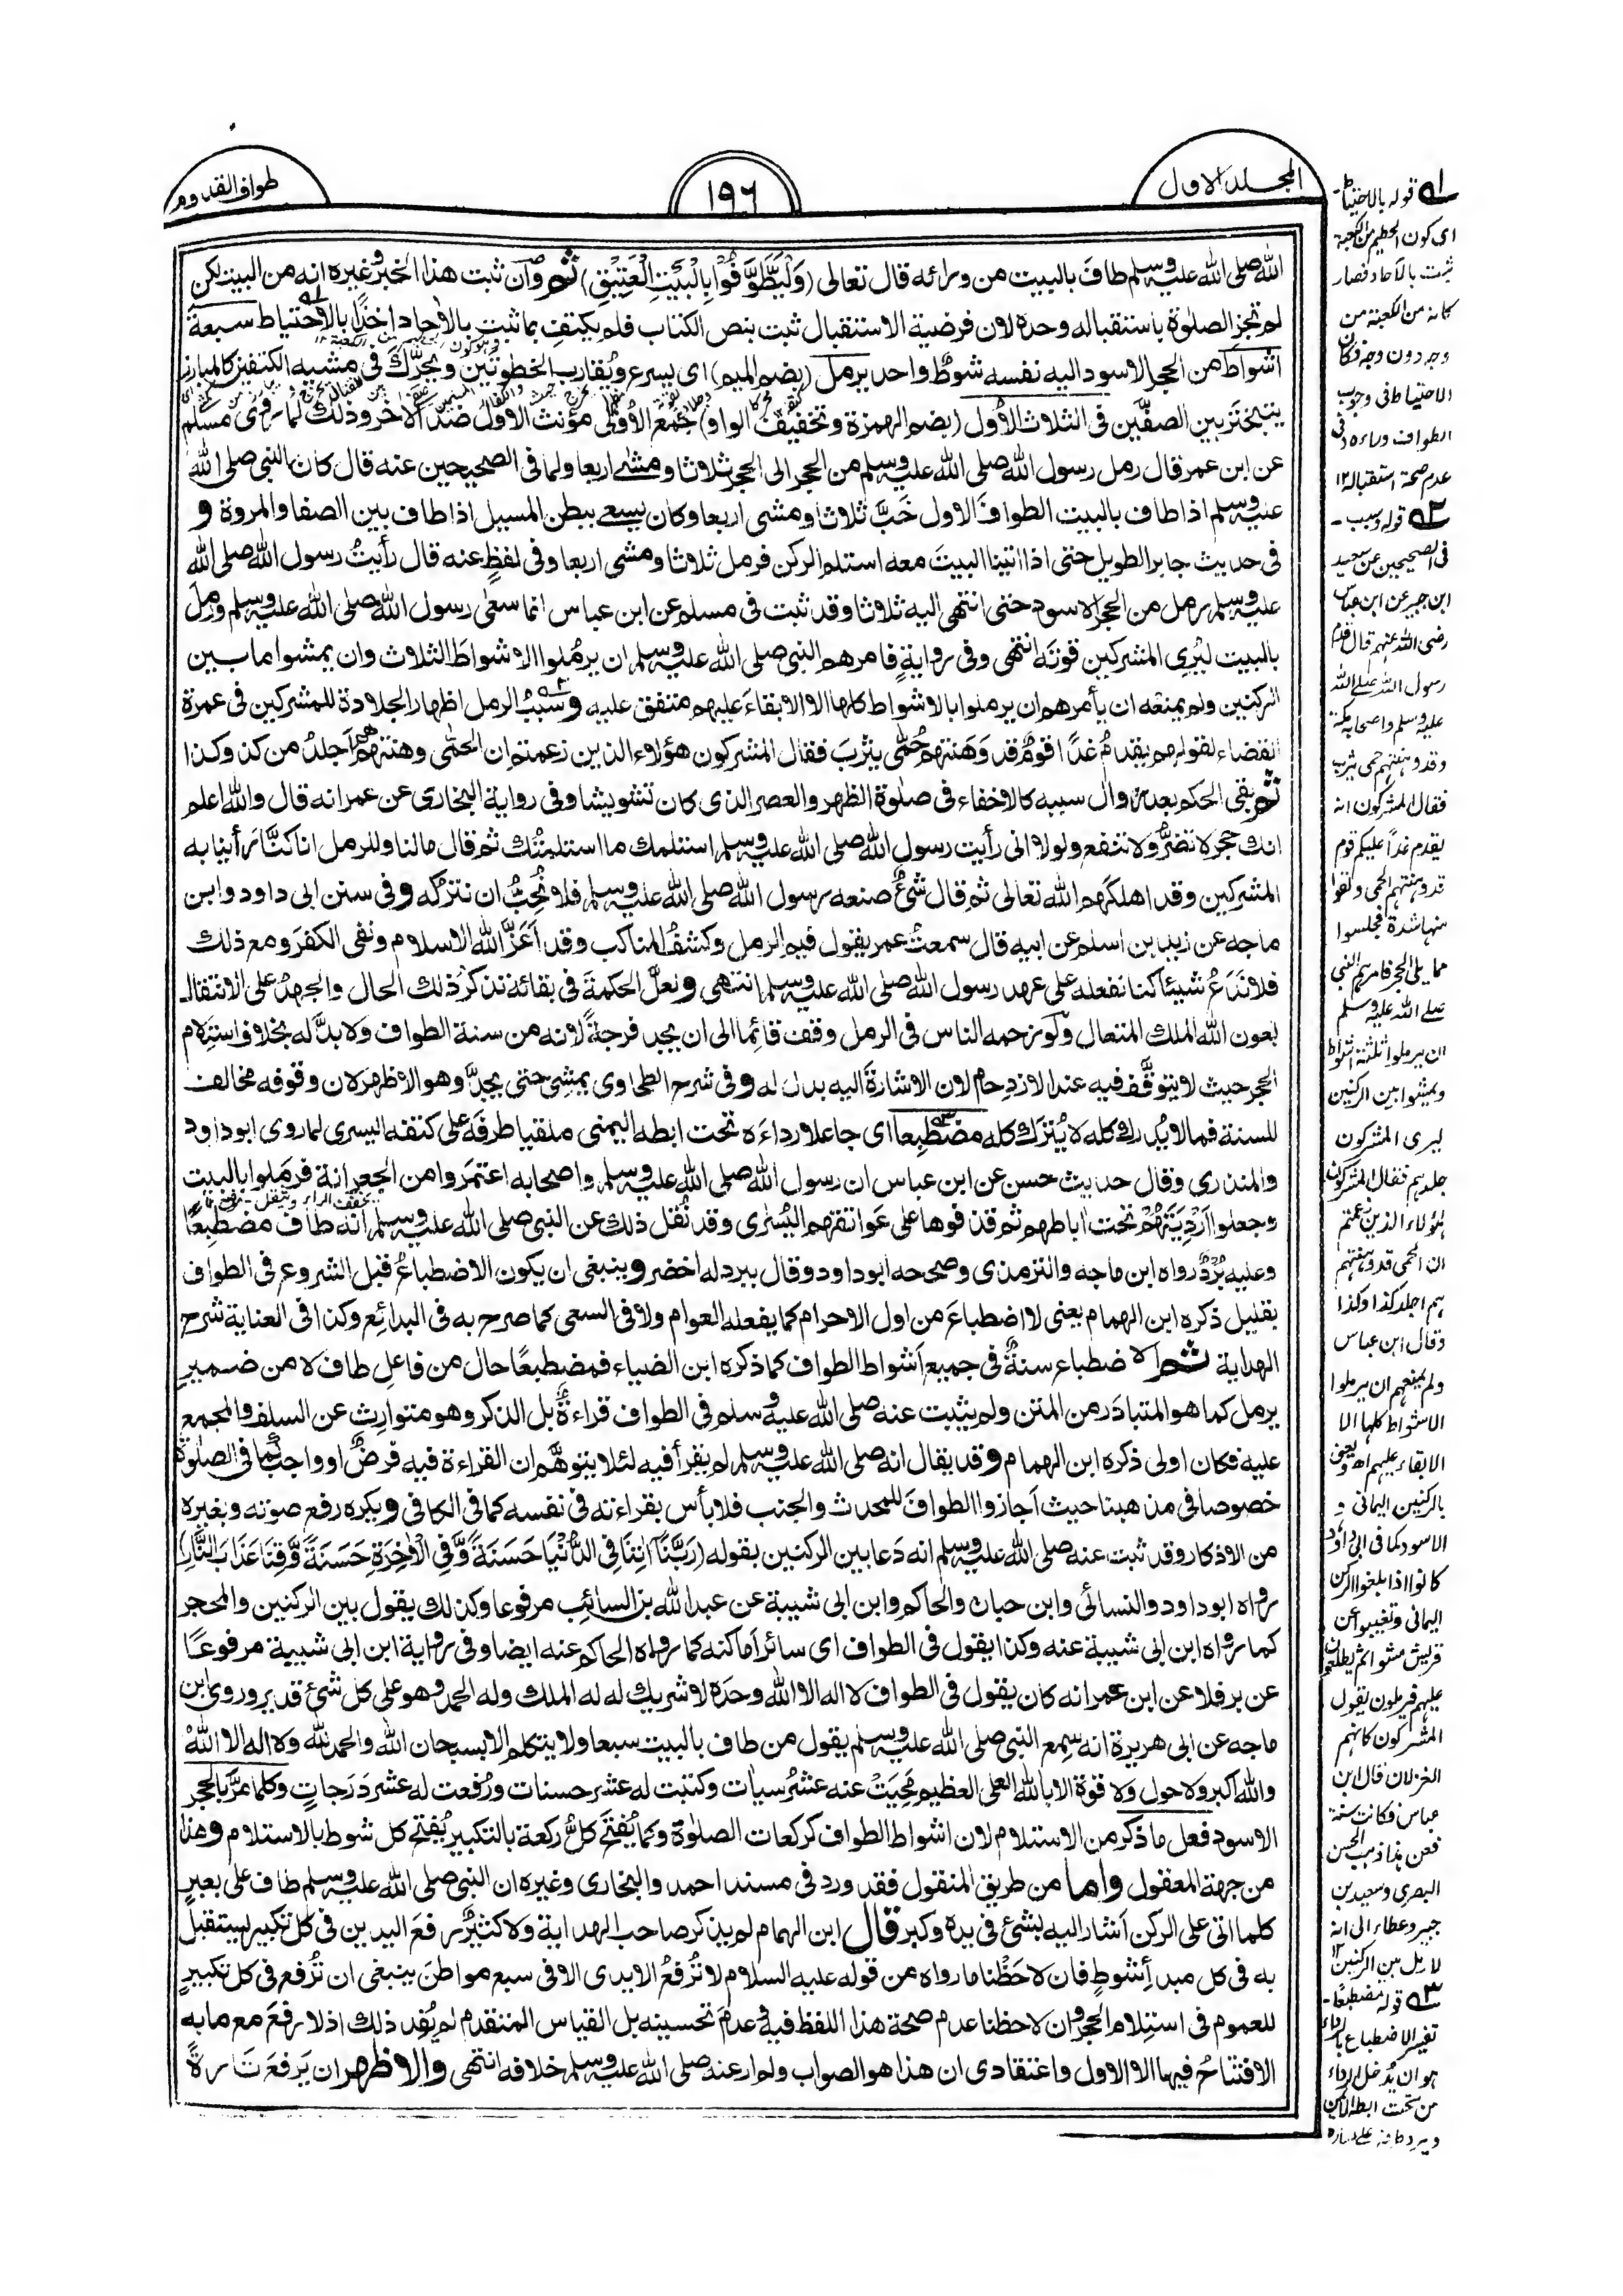 المجلد الاول
١٩٦
طواف القدوم
الله صلى الله عليه وسلم طاف بالبيت من ورائه قال تعالى (وَلْيَطَّوَّفُوْا بِالْبَيْتِ الْعَتِيْقِ) ثم وان ثبت هذا الخبر وغيره انه من البيت لكن
لم تجز الصلوة باستقباله وحده لان فرضية الاستقبال ثبت بنص الكتاب فلم يكتف بما ثبت بالآحاد اخذًا بالاحتياط سبعة
اشواط من الحجر الاسود اليه نفسه شوطٌ واحد يرمل (بضم الميم) اى يسرع ويُقارب الخطوتين ويحرّك فى مشيه الكتفين كالمبارز
يتبختر بين الصفّين فى الثلاث الأُول (بضم الهمزة وتخفيف الواو) جمع الأولى مؤنث الاول ضدّ الآخر وذلك لما روى مسلم
عن ابن عمر قال رمل رسول الله صلى الله عليه وسلم من الحجر الى الحجر ثلاثا ومشى اربعا ولما فى الصحيحين عنه قال كان النبى صلى الله
عليه وسلم اذا طاف بالبيت الطوافَ الاول خَبَّ ثلاثا ومشى اربعا وكان يسعى ببطن المسيل اذا طاف بين الصفا والمروة و
فى حديث جابر الطويل حتى اذا اتينا البيتَ معه استلم الركن فرمل ثلاثا ومشى اربعا وفى لفظٍ عنه قال رأيتُ رسول الله صلى الله
عليه وسلم يرمل من الحجر الاسود حتى انتهى اليه ثلاثا وقد ثبت فى مسلم عن ابن عباس انما سعى رسول الله صلى الله عليه وسلم ورملَ
بالبيت ليُرِى المشركين قوتَه انتهى وفى روايةٍ فامرهم النبى صلى الله عليه وسلم ان يرمُلوا الاشواطَ الثلاث وان يمشوا ما بين
الركنين ولم يمنعه ان يأمرهم ان يرملوا بالاشواط كلها الا الابقاءَ عليهم متفق عليه وسَبَبُ الرمل اظهار الجلادة للمشركين فى عمرة
القضاء لقولهم يقدمُ غدًا قومٌ قد وَهَنتهم حُمّٰى يثربَ فقال المشركون هؤلاء الذين زعمتم ان الحمّٰى وهنتهم هم اجلدُ من كذ وكذا
ثم بقى الحكم بعد زوال سببه كالاخفاء فى صلوة الظهر والعصر الذى كان تشويشا وفى رواية البخارى عن عمر انه قال والله اعلم
انك حجر لا تضرُّ ولا تنفع ولولا انى رأيت رسول الله صلى الله عليه وسلم استلمك ما استلمتُك ثم قال مالنا وللرمل انا كنّا رأينا به
المشركين وقد اهلكهم الله تعالى ثم قال شئٌ صنعه رسول الله صلى الله عليه وسلم فلا نُحِبُّ ان نتركه وفى سنن ابى داود وابن
ماجه عن زيد بن اسلم عن ابيه قال سمعتُ عمر يقول فيم الرمل وكشفُ المناكب وقد اَعَزَّ الله الاسلام ونفى الكفرَ ومع ذلك
فلا نَدَعُ شيئا كنا نفعله على عهد رسول الله صلى الله عليه وسلم انتهى ولعلّ الحكمةَ فى بقائه تذكرُ ذلك الحال والجهدُ على الانتقال
بعون الله الملك المتعال ولو زحمه الناس فى الرمل وقف قائما الى ان يجد فرجةً لانه من سنة الطواف ولا بدّ له بخلاف استلام
الحجر حيث لا يتوقّف فيه عند الازدحام لان الاشارةَ اليه بدل له وفى شرح الطحاوى يمشى حتى يجدَ وهو الاظهر لان وقوفه مخالف
للسنة فما لا يدرك كله لا يُترك كله مضطبعا اى جاعلا رداءَه تحت ابطه اليمنى ملقيا طرفَه على كتفه اليسرى لما روى ابو داود
والمنذرى وقال حديث حسن عن ابن عباس ان رسول الله صلى الله عليه وسلم واصحابه اعتمروا من الجعرانة فرمَلوا بالبيت
وجعلوا اَرْدِيَتَهُمْ تحت آباطهم ثم قذفوها على عَواتقهم اليُسْرى وقد نُقل ذلك عن النبى صلى الله عليه وسلم انه طاف مضطبعًا
وعليه بُرْدٌ رواه ابن ماجه والترمذى وصححه ابو داود وقال ببرد له اخضر وينبغى ان يكون الاضطباعُ قبل الشروع فى الطواف
بقليل ذكره ابن الهمام يعنى لا اضطباعَ من اول الاحرام كما يفعله العوام ولا فى السعى كما صرح به فى البدائع وكذا فى العناية شرح
الهداية ثم الاضطباع سنةٌ فى جميع اَشواط الطواف كما ذكره ابن الضياء فمضطبعًا حال من فاعل طاف لا من ضمير
يرمل كما هو المتبادر من المتن ولم يثبت عنه صلى الله عليه وسلم فى الطواف قراءةٌ بل الذكر وهو متوارث عن السلف والمجمع
عليه فكان اولى ذكره ابن الهمام وقد يقال انه صلى الله عليه وسلم لم يقرأ فيه لئلا يتوهّم ان القراءة فيه فرضٌ او واجب كما فى الصلوة
خصوصا فى مذهبنا حيث اَجازوا الطوافَ للمحدث والجنب فلا بأس بقراءته فى نفسه كما فى الكافى ويكره رفع صوته وبغيره
من الاذكار وقد ثبت عنه صلى الله عليه وسلم انه دَعا بين الركنين بقوله (رَبَّنَآ اٰتِنَا فِى الدُّنْيَا حَسَنَةً وَّفِى الْاٰخِرَةِ حَسَنَةً وَّقِنَا عَذَابَ النَّارِ)
رواه ابو داود والنسائى وابن حبان والحاكم وابن ابى شيبة عن عبد الله بن السائب مرفوعا وكذلك يقول بين الركنين والحجر
كما رواه ابن ابى شيبة عنه وكذا يقول فى الطواف اى سائر اَماكنه كما رواه الحاكم عنه ايضا وفى رواية ابن ابى شيبة مرفوعًا
عن ابن عمر انه كان يقول فى الطواف لا اله الا الله وحدَه لا شريك له له الملك وله الحمد وهو على كل شئ قدير وروى ابن
ماجه عن ابى هريرة انه سمع النبى صلى الله عليه وسلم يقول من طاف بالبيت سبعا ولا يتكلم الا بسبحان الله والحمد لله ولا اله الا اللهُ
والله اكبر ولا حول ولا قوة الا بالله العلى العظيم مُحِيَتْ عنه عشرُ سيات وكتبت له عشر حسنات ورُفعت له عشر دَرَجاتٍ وكلما مرّ بالحجر
الاسود فعل ما ذكر من الاستلام لان اشواط الطواف كركعات الصلوة وكما يُفتَح كلُّ ركعة بالتكبير يُفتح كل شوط بالاستلام وهذا
من جهة المعقول واما من طريق المنقول فقد ورد فى مسند احمد والبخارى وغيره ان النبى صلى الله عليه وسلم طاف على بعير
كلما اتى على الركن اَشار اليه بشئ فى يده وكبر قال ابن الهمام لم يذكر صاحب الهداية ولا كثيرٌ رفعَ اليدين فى كل تكبير يستقبل
به فى كل مبدأ شوطٍ فان لاحَظْنا ما رواه من قوله عليه السلام لا تُرفعُ الايدى الا فى سبع مواطنَ ينبغى ان تُرفع فى كل تكبيرٍ
للعموم فى استلام الحجر وان لاحظنا عدم صحة هذا اللفظ فيه وعدمَ تحسينه بل القياس المتقدم لم يُفد ذلك اذ لا رفعَ مع ما به
الافتتاحُ فيها الا الاول واعتقادى ان هذا هو الصواب ولم ار عنه صلى الله عليه وسلم خلافه انتهى والاظهر ان يَرفعَ تَارةً
١ه قوله بالاحتياط-
اى كون الحطيم من الكعبة
ثبت بالآحاد فصار
كانه من الكعبة من
وجه دون وجه فكان
الاحتياط فى وجوب
الطواف وراءه وفى
عدم صحة استقباله ١٢
٢ه قوله وسبب -
فى الصحيحين عن سعيد
ابن جبير عن ابن عباس
رضى الله عنهم قال قدم
رسول الله صلى الله
عليه وسلم واصحابه مكة
وقد وهنتهم حمى يثرب
فقال المشركون انه
يقدم غدًا عليكم قوم
قد وهنتهم الحمى ولقوا
منها شدة فجلسوا
مما يلى الحجر فامرهم النبى
صلى الله عليه وسلم
ان يرملوا ثلثة اشواط
ويمشوا بين الركنين
ليرى المشركون
جلدهم فقال المشركون
هؤلاء الذين زعمتم
ان الحمى قد وهنتهم
هم اجلد كذا وكذا
وقال ابن عباس
ولم يمنعهم ان يرملوا
الاشواط كلها الا
الابقاء عليهم اهـ ويعنى
بالركنين اليمانى و
الاسود كما فى ابى داؤد
كانوا اذا بلغوا الركن
اليمانى وتغيبوا عن
قريش مشوا ثم يطلعون
عليهم فيرملون يقول
المشركون كانهم
الغزلان قال ابن
عباس فكانت سنة
فعن هذا ذهب الحسن
البصرى وسعيد بن
جبير وعطاء الى انه
لا رمل بين الركنين ١٢
٣ه قوله مضطبعا-
تفسير الاضطباع بالرداء
هو ان يُدخل الرداء
من تحت ابطه الايمن
ويرد طرفه على يساره